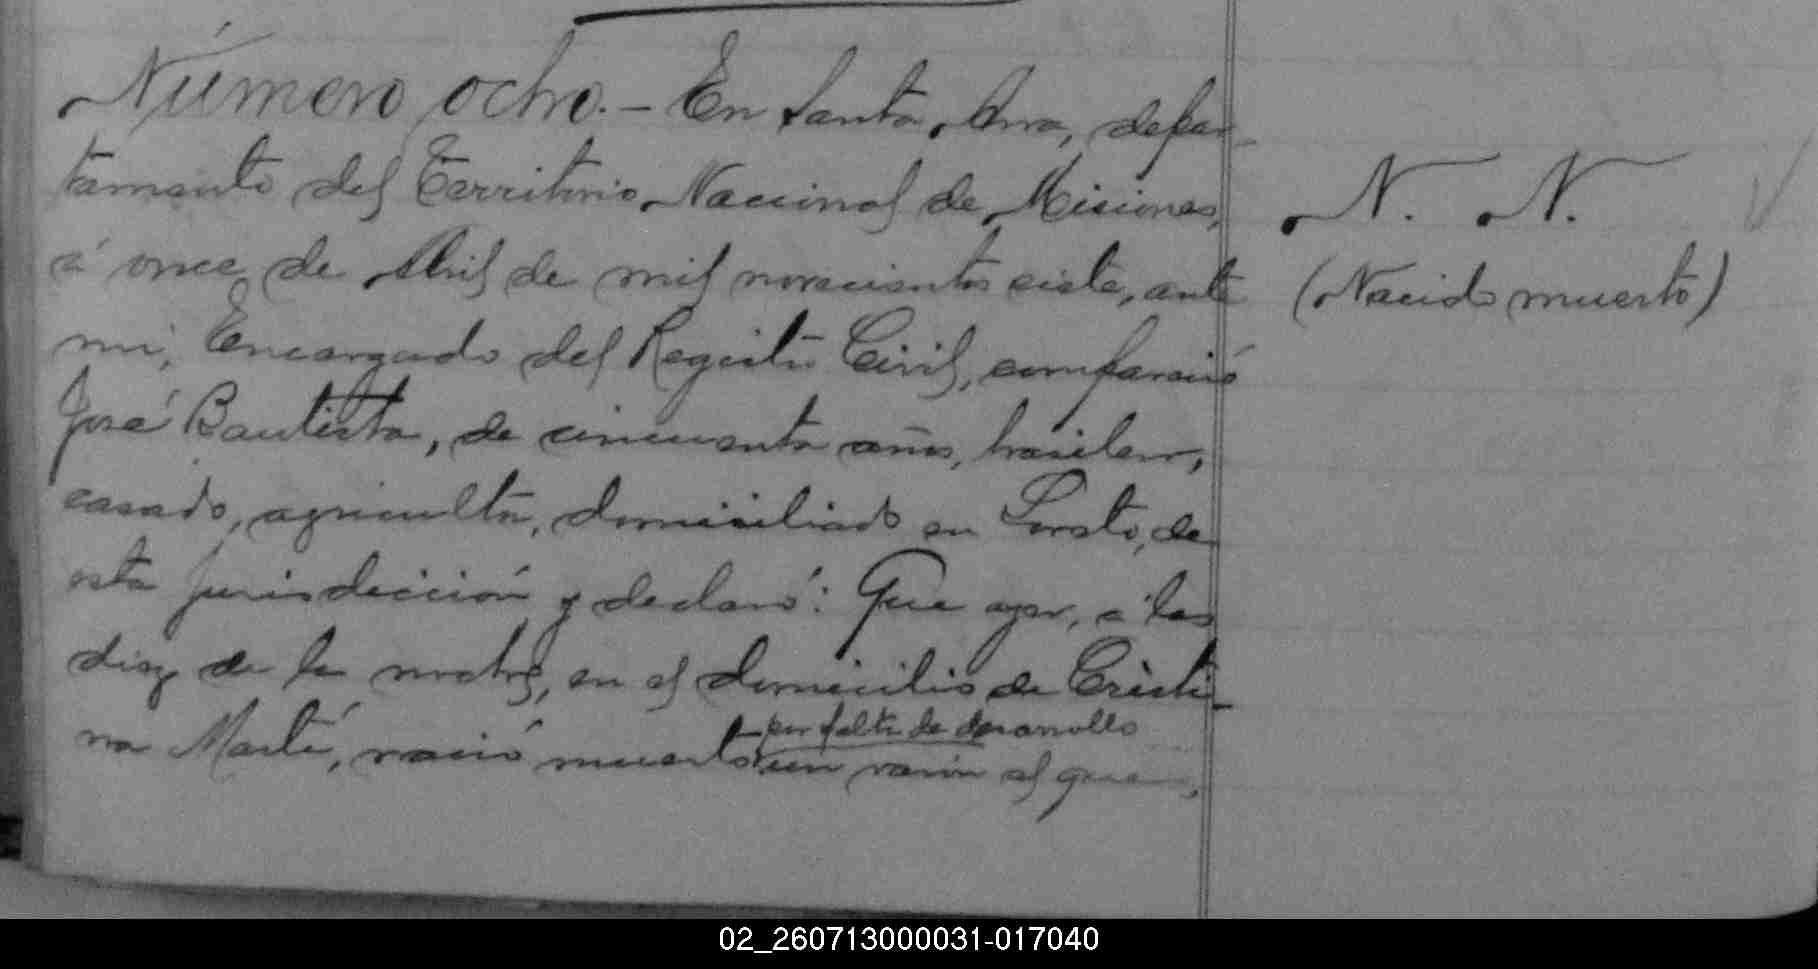 Número ocho. - En Santa Ana, depar-
tamento del Territorio Nacional de Misiones,
á once de Abril de mil novecientos siete, ante
mi, Encargado del Registro Civil, compareció
José Bautista, de cincuenta años, brasilero,
casado, agricultor, domiciliado en Loreto, de
esta jurisdicción y declaró: Que ayer, á las
diez de la noche, en el domicilio de Cristi-
por falta de desarrollo
na Martí, nació muerto un varón el que,
N. N.
(Nacido muerto)
02_260713000031-017040